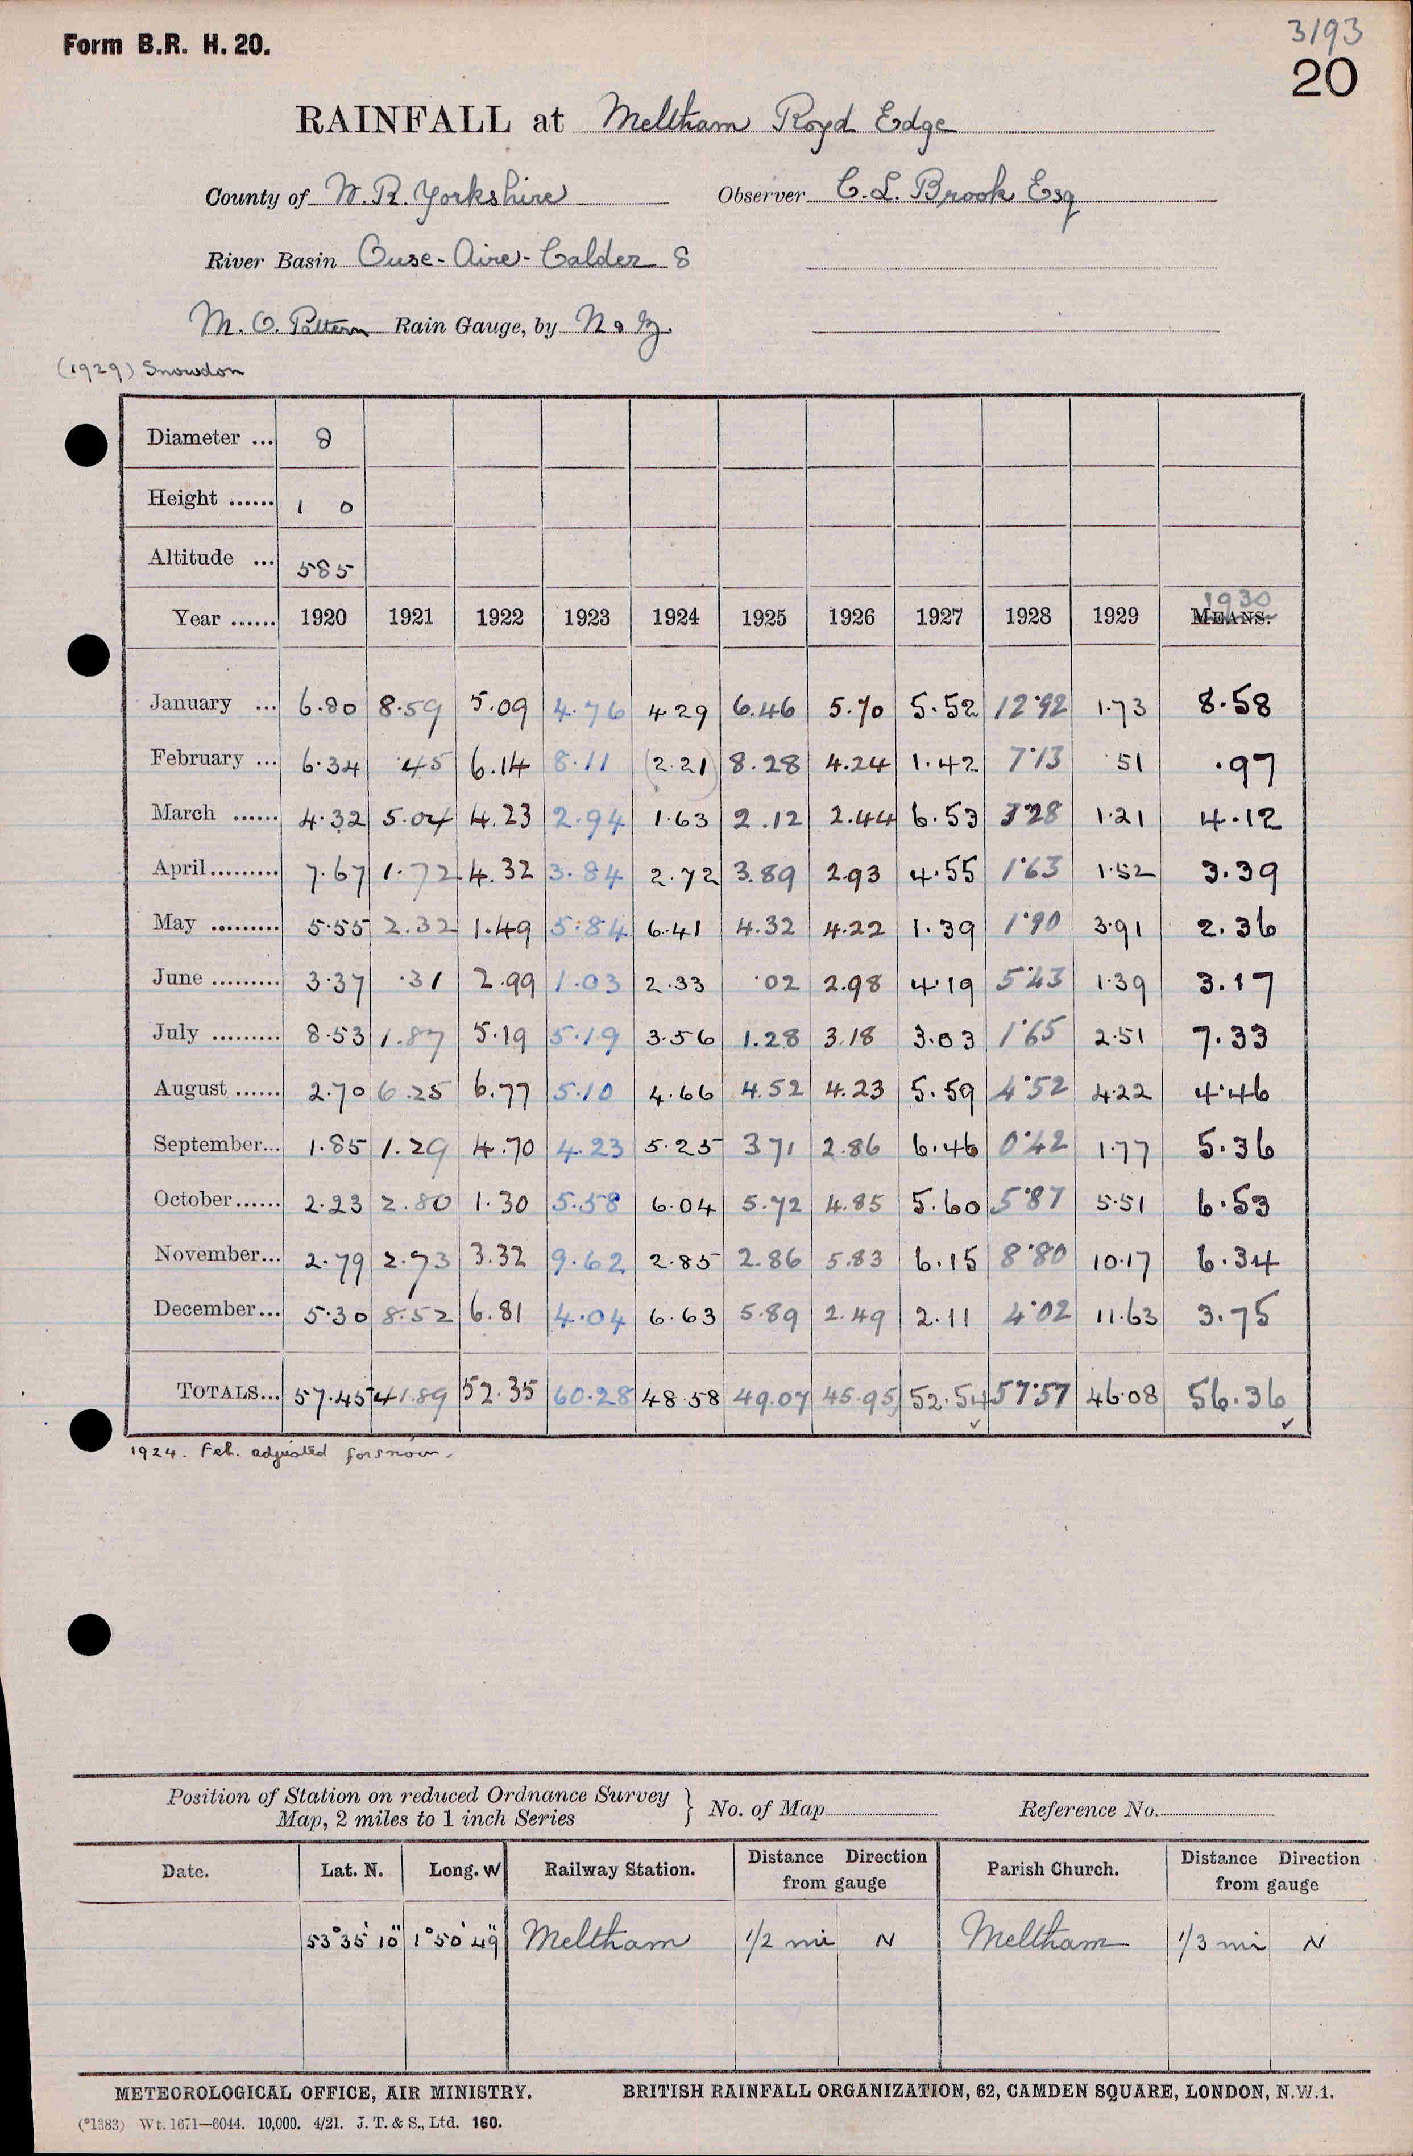 Form B.R. H. 20.
3193
20
RAINFALL at Meltham Royd Edge
County of W.R. Yorkshire Observer C.L. Brook Esq
River Basin Ouse-Aire-Calder 8
M.O. Pattern Rain Gauge, by N & Z
(1929) Snowdon
Diameter ... 8
Height ...... 1 0
Altitude ... 585
Year ...... 1920 1921 1922 1923 1924 1925 1926 1927 1928 1929 MEANS. 1930
January ... 6.80 8.59 5.09 4.76 4.29 6.46 5.70 5.52 12.92 1.73 8.58
February ... 6.34 .45 6.14 8.11 (2.21) 8.28 4.24 1.42 7.13 .51 .97
March ...... 4.32 5.04 4.23 2.94 1.63 2.12 2.44 6.53 3.28 1.21 4.12
April......... 7.67 1.72 4.32 3.84 2.72 3.89 2.93 4.55 1.63 1.52 3.39
May ......... 5.55 2.32 1.49 5.84 6.41 4.32 4.22 1.39 1.90 3.91 2.36
June ......... 3.37 .31 2.99 1.03 2.33 .02 2.98 4.19 5.43 1.39 3.17
July ......... 8.53 1.87 5.19 5.19 3.56 1.28 3.18 3.03 1.65 2.51 7.33
August ...... 2.70 6.25 6.77 5.10 4.66 4.52 4.23 5.59 4.52 4.22 4.46
September... 1.85 1.29 4.70 4.23 5.25 3.71 2.86 6.46 0.42 1.77 5.36
October...... 2.23 2.80 1.30 5.58 6.04 5.72 4.85 5.60 5.87 5.51 6.53
November... 2.79 2.73 3.32 9.62 2.85 2.86 5.83 6.15 8.80 10.17 6.34
December... 5.30 8.52 6.81 4.04 6.63 5.89 2.49 2.11 4.02 11.63 3.75
TOTALS... 57.45 41.89 52.35 60.28 48.58 49.07 45.95 52.54 57.57 46.08 56.36
1924. Feb. adjusted for snow.
Position of Station on reduced Ordnance Survey
Map, 2 miles to 1 inch Series } No. of Map Reference No.
Date. Lat. N. Long. W Railway Station. Distance Direction from gauge Parish Church. Distance Direction from gauge
53° 35' 10" 1° 50' 49" Meltham 1/2 mi N Meltham 1/3 mi N
METEOROLOGICAL OFFICE, AIR MINISTRY. BRITISH RAINFALL ORGANIZATION, 62, CAMDEN SQUARE, LONDON, N.W.1.
(*1383) Wt. 1671—6044. 10,000. 4/21. J. T. & S., Ltd. 160.